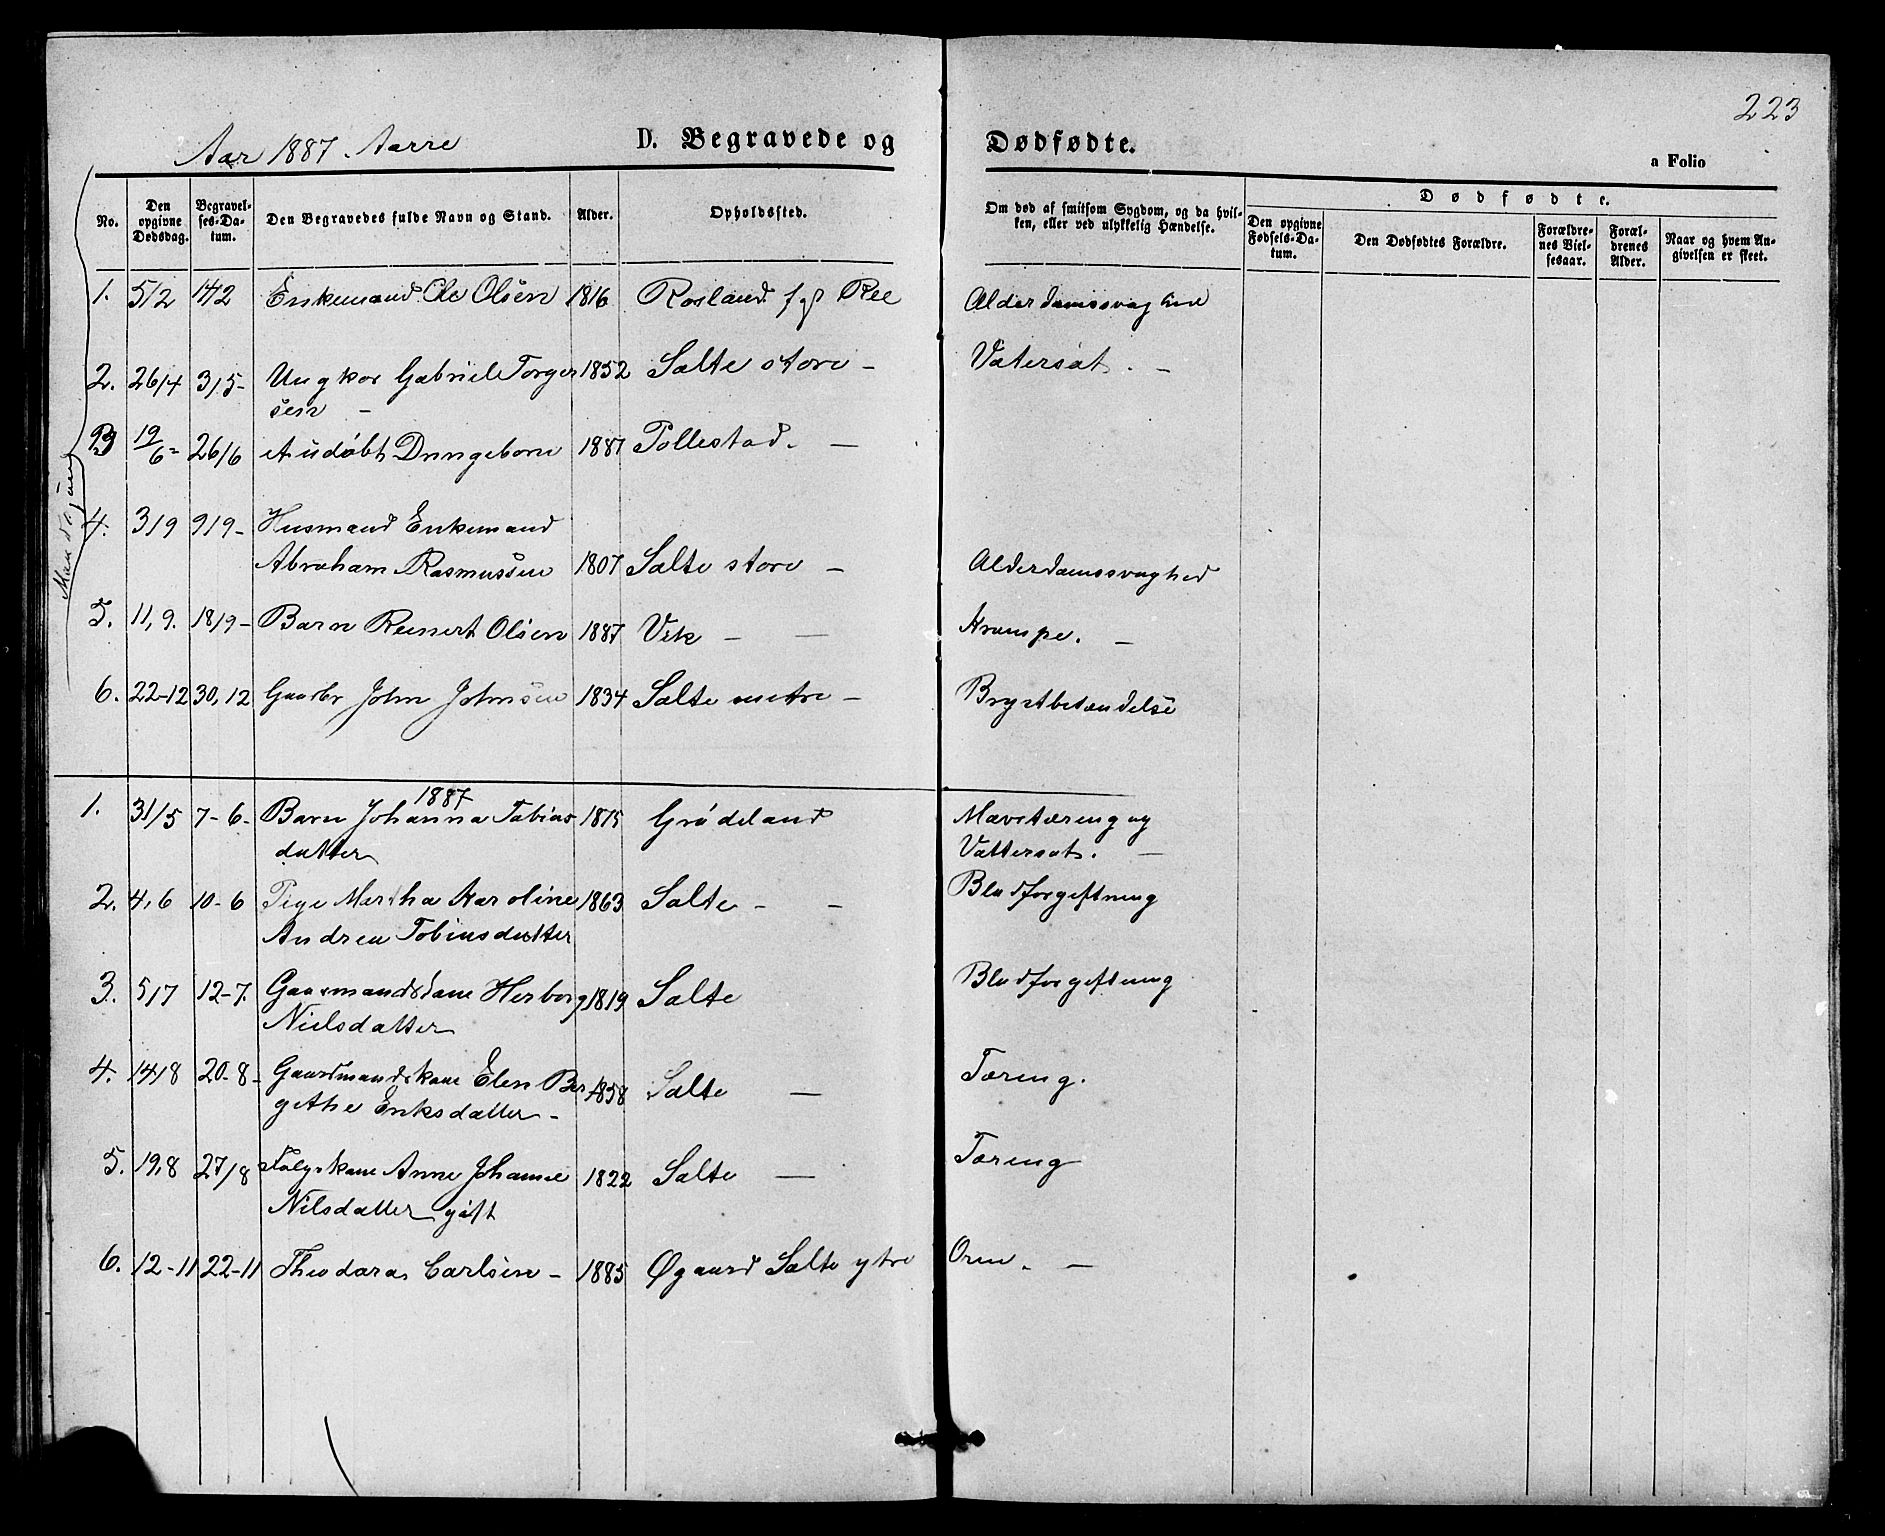 223
Aar 1887. Aarre
D. Begravede og Dødfødte.
a Folio
No.
Den opgivne Dødsdag.
Begravelses-Datum.
Den Begravedes fulde Navn og Stand.
Alder.
Opholdssted.
Om død af smitsom Sygdom, og da hvilken, eller ved ulykkelig Hændelse.
Dødfødte.
Den opgivne Fødsels-Datum.
Den Dødfødtes Forældre.
Forældrenes Vielsesaar.
Forældrenes Alder.
Naar og hvem Angivelsen er skeet.
Mandkjøn
1. 5/2 14/2 Enkemand Ole Olsen 1816 Rosland Alderdomssvaghed
2. 26/4 3/5- Ungkar Gabriel Torger 1852 Salte store - Vatersot. -
sen -
3 19/6- 26/6 Audøbt 1887 Pollestad. -
4. 3/9 9/9- Husmand Enkemand
Abraham Rasmussen 1807 Salte store - Alderdomssvaghed
5. 11,9. 18/9- Barn Reinert Olsen 1887 Vik - - Krampe. -
6. 22-12 30,12 Gaardbr John Johnsen 1834 Salte - Brystbetændelse
1887
1. 31/5 7-6- Barn Johanna Tobias 1875 Grødeland Mavetæring og
datter Vattersot. -
2. 4,6 10-6 Pige Martha Karoline 1863 Salte - - Blodforgiftning
Andrea Tobiasdatter
3. 5/7 12-7. Gaardmandskane Herborg 1819 Salte Blodforgiftning
Nielsdatter
4. 14/8 20-8- Gaardmandskane Elen Ber 1858 Salte - Tæring.
githe Eriksdatter -
5. 19,8 27/8 Følgskane Anne Johanne 1822 Salte - Tæring
Nilsdatter gift
6. 12-11 22-11 Theodora Carlsen - 1885 Øgaard Salte ytre Orm. -